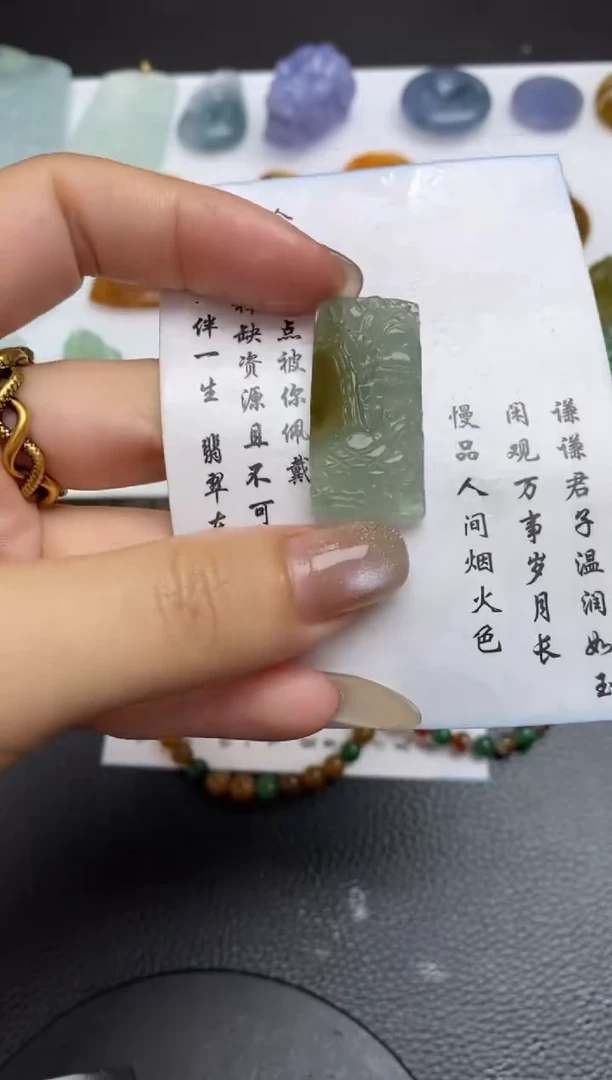 谦谦君子温润如玉
闲观万事岁月长
慢品人间烟火色
点被你佩戴
缺资源且不可
伴一生 翡翠